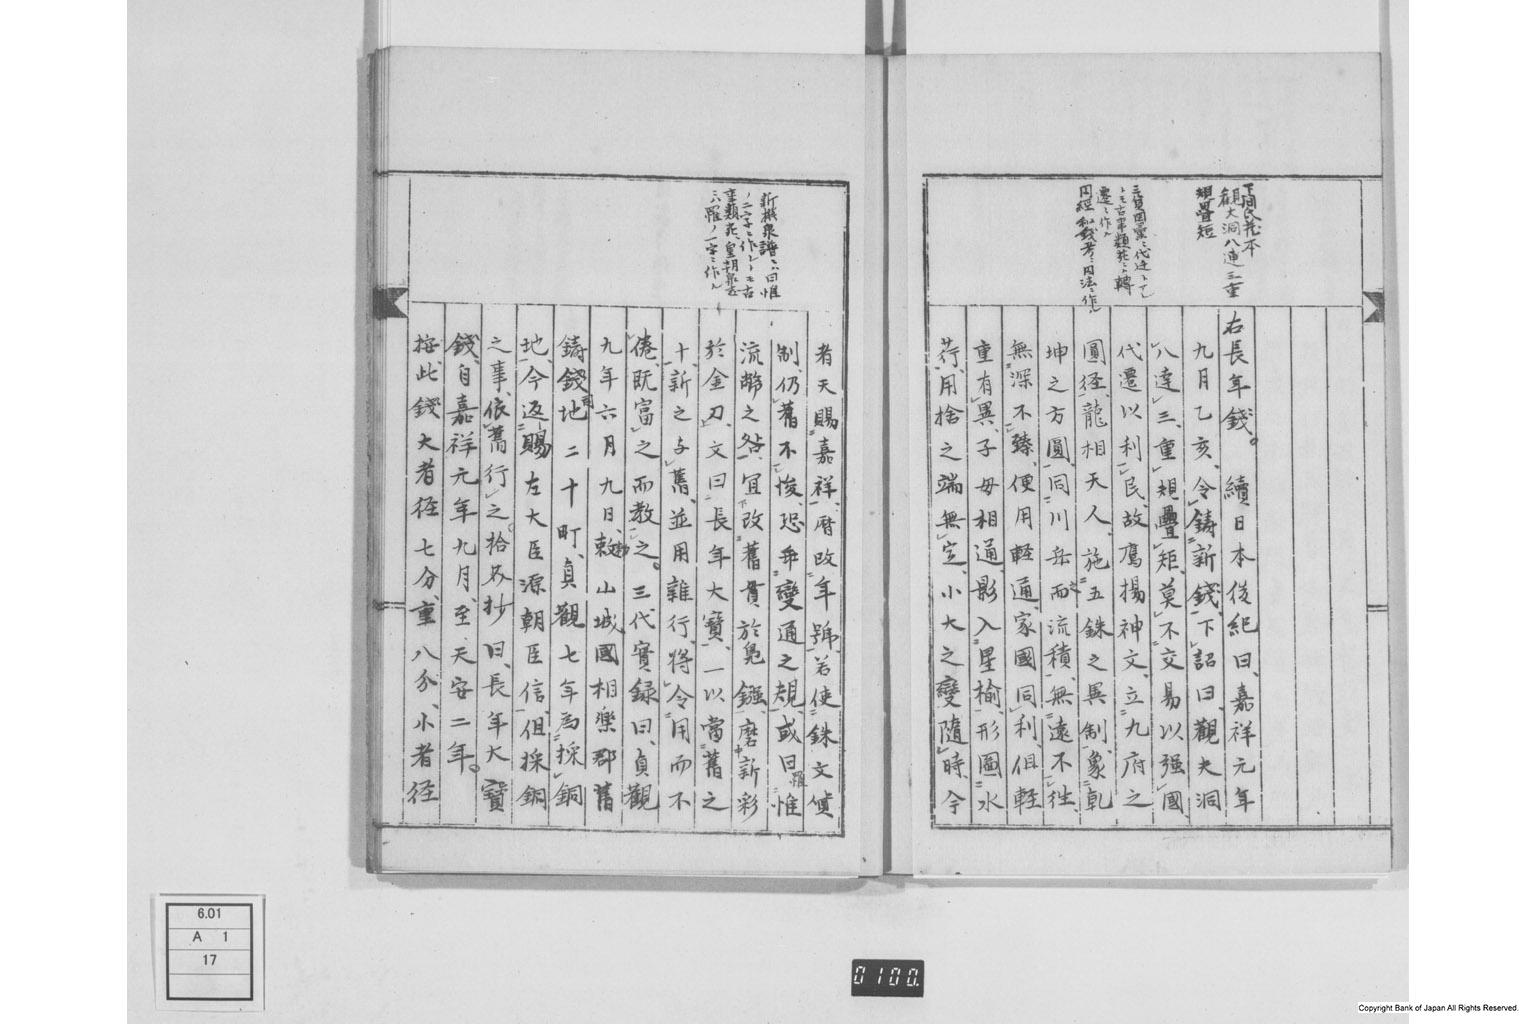 下間氏蔵本
觀大洞八連三重
規疊短
三貨圖彙ニ代辻トアレ
トモ古事類苑ニハ轉
遷ニ作ル
円經和銭考ニ円法ニ作ル
右長年錢。 續日本後紀曰、嘉祥元年
九月乙亥、令鑄新錢、下詔曰、觀夫洞
八達三、重規疊矩、莫不交易以强國
代遷以利民、故鷹揚神文、立九府之
圓径、龍相天人、施五銖之異制、象乾
坤之方圓、同川岳而流積、無遠不徃、
無深不臻、便用軽通、家國同利、但軽
重有異、子母相通、影入星楡、形圖水
荇、用捨之端無定、小大之變隨時、今
新撰泉譜ニハ曰惟
ノ二字ニ作レトモ古
事類苑、皇朝泉志
ニハ罹ノ一字ニ作ル
者天賜嘉祥、暦改年號、若使銖文僨
制、仍舊不悛、恐乖變通之規、或曰罹惟
流幣之咎、宜改舊貫於鳧鏹、磨新彩
於金刀、文曰長年大寳、一以當舊之
十、新之与舊、並用雜行、將令用而不
倦、既富之而教之。三代實録曰、貞觀
九年六月九日、敕山城國相樂郡舊
鑄錢司地二十町、貞觀七年為採銅
地、今返賜左大臣源朝臣信、但採銅
之事、依舊行之。拾芥抄曰、長年大寳
錢、自嘉祥元年九月、至天安二年。
按、此錢大者径七分、重八分、小者径
6.01
A 1
17
0100.
Copyright Bank of Japan All Rights Reserved.